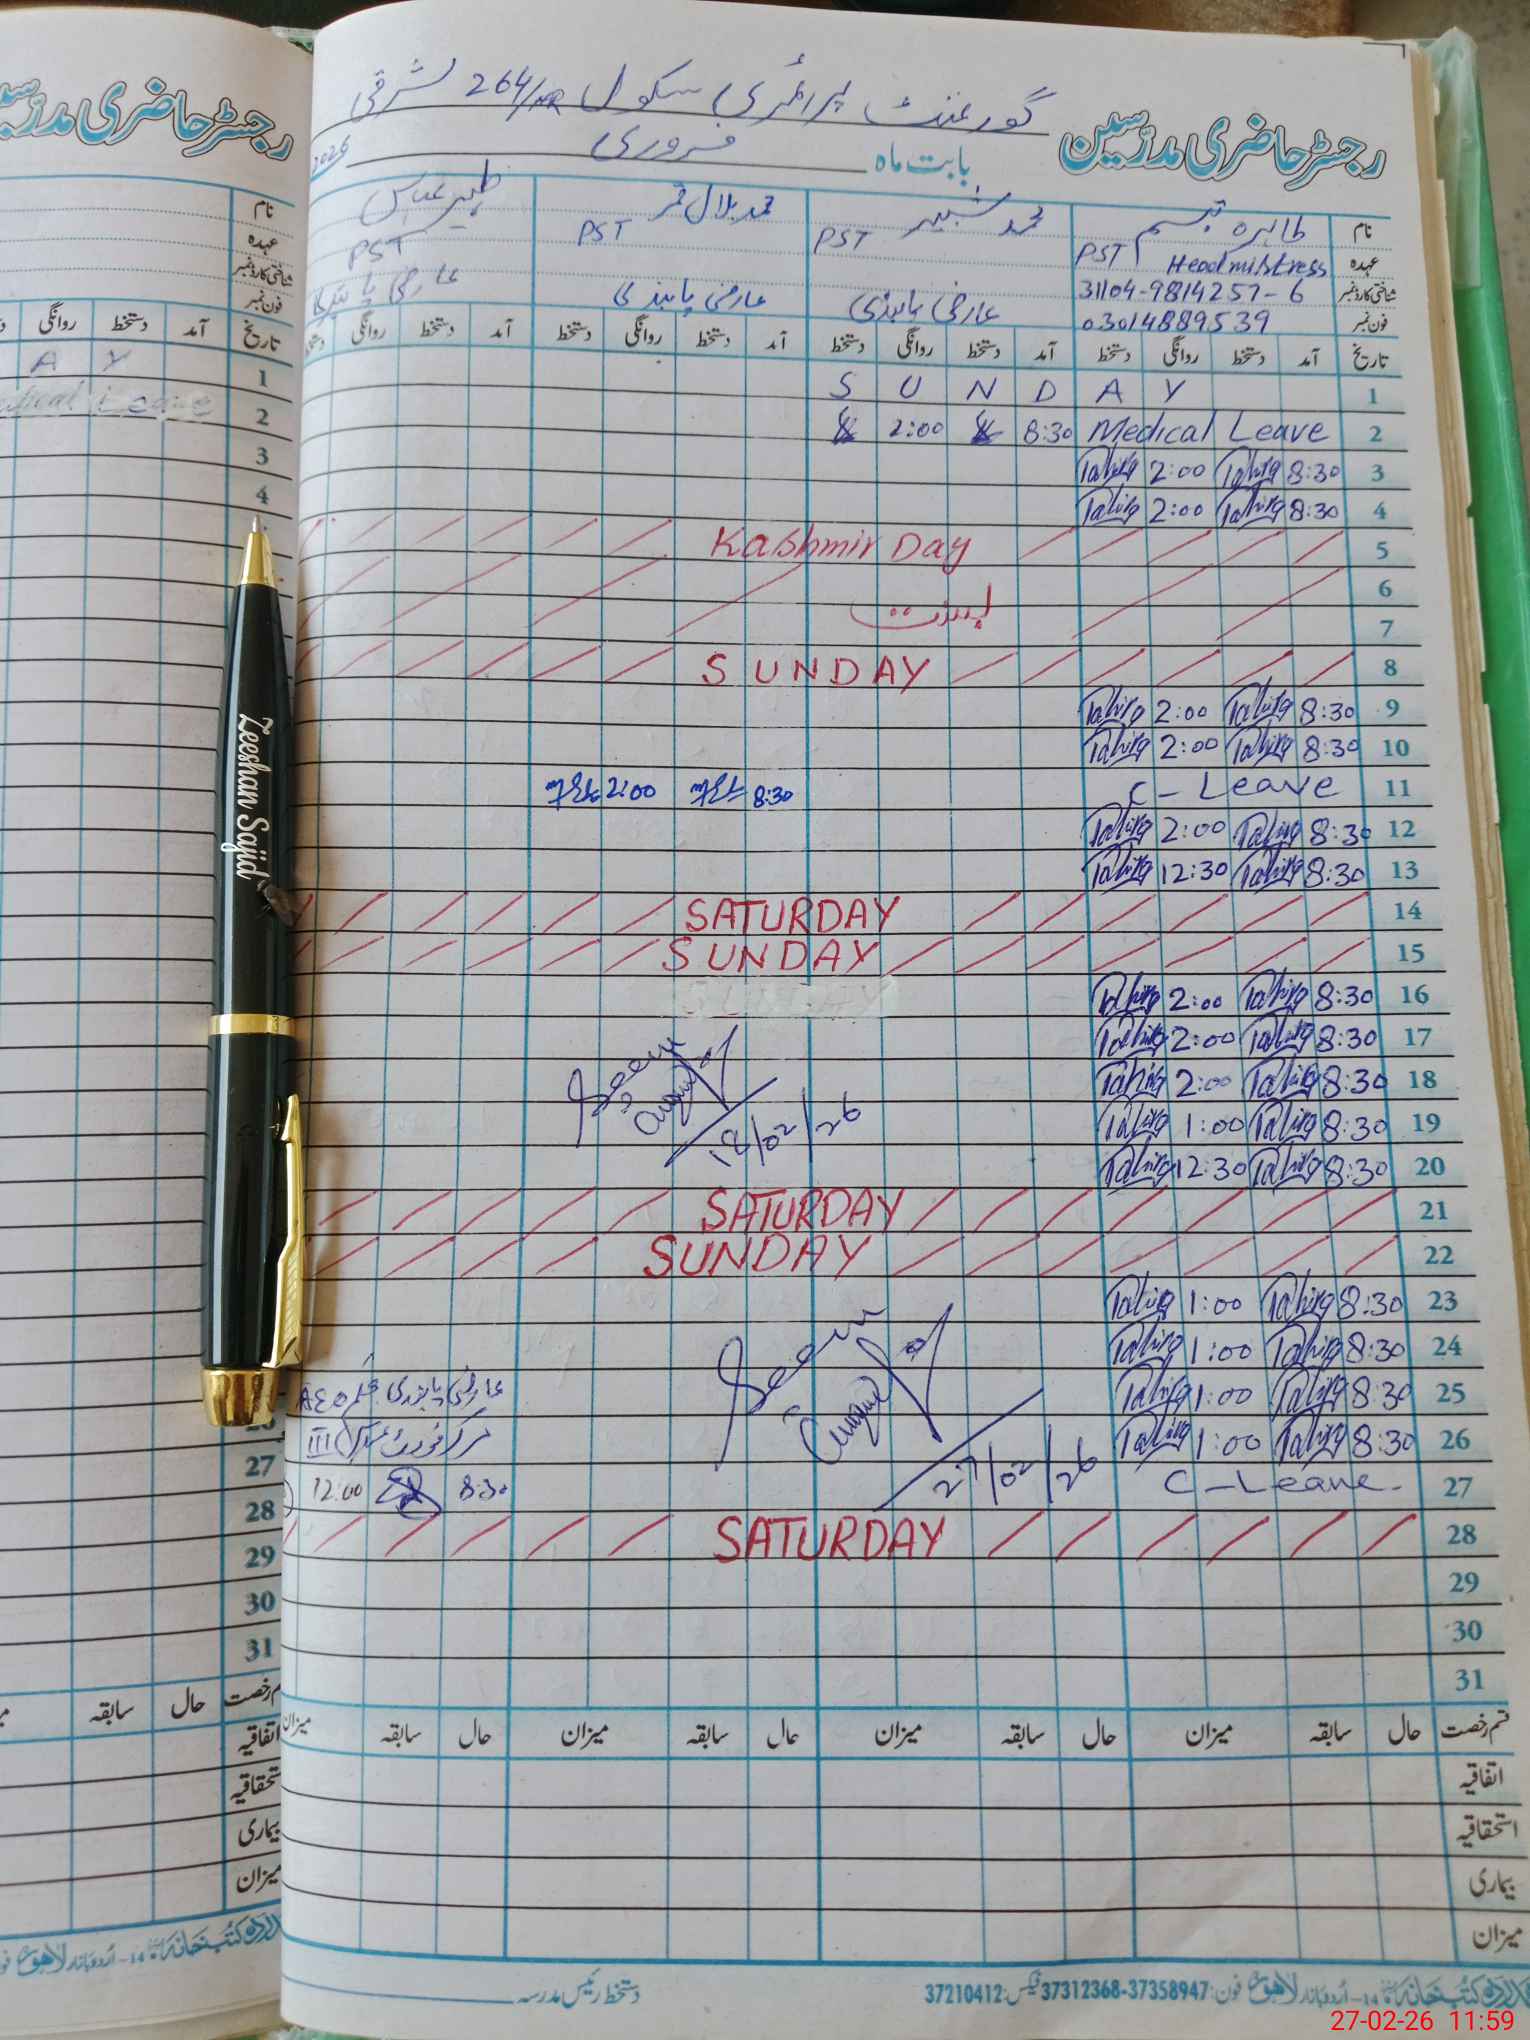 رجسٹر حاضری مدرّسین
گورنمنٹ پرائمری سکول 264/HR شرقی
بابت ماہ فروری 2026
نام طاہرہ تبسم محمد شبیر محمد بلال قمر ظہیر عباس
عہدہ PST Headmistress PST PST PST
شناختی کارڈ نمبر 31104-9814257-6 عارضی پابندی عارضی پابندی عارضی پابندی
فون نمبر 03014889539
تاریخ آمد دستخط روانگی دستخط آمد دستخط روانگی دستخط آمد دستخط روانگی دستخط آمد دستخط روانگی
1 S U N D A Y
2 Medical Leave 8:30 2:00
3 8:30 Tahira 2:00 Tahira
4 8:30 Tahira 2:00 Tahira
5 Kashmir Day
6
7 بسنت
8 SUNDAY
9 8:30 Tahira 2:00 Tahira
10 8:30 Tahira 2:00 Tahira
11 C-Leave 8:30 2:00
12 8:30 Tahira 2:00 Tahira
13 8:30 Tahira 12:30 Tahira
14 SATURDAY
15 SUNDAY
16 8:30 Tahira 2:00 Tahira
SUNDAY
17 8:30 Tahira 2:00 Tahira
18 8:30 Tahira 2:00 Tahira
18/02/26
19 8:30 Tahira 1:00 Tahira
20 8:30 Tahira 12:30 Tahira
21 SATURDAY
22 SUNDAY
23 8:30 Tahira 1:00 Tahira
24 8:30 Tahira 1:00 Tahira
25 8:30 Tahira 1:00 Tahira
عارضی پابندی بحکم AEO
26 8:30 Tahira 1:00 Tahira
مرکز فورٹ عباس III
27 C-Leave 8:30 12:00
27/02/26
28 SATURDAY
29
30
31
قسم رخصت حال سابقہ میزان حال سابقہ میزان حال سابقہ میزان حال سابقہ میزان
اتفاقیہ
استحقاقیہ
بیماری
میزان
دستخط رئیس مدرسہ
کتب خانہ 14-اُردو بازار لاہور فون:37358947-37312368 فیکس:37210412
رجسٹر حاضری مدرّسین
نام
عہدہ
شناختی کارڈ نمبر
فون نمبر
تاریخ آمد دستخط روانگی
1 A Y
2 Medical Leave
3
4
27
28
29
30
31
قسم رخصت حال سابقہ
اتفاقیہ
استحقاقیہ
بیماری
میزان
کتب خانہ 14-اُردو بازار لاہور
Zeeshan Sajid
27-02-26 11:59